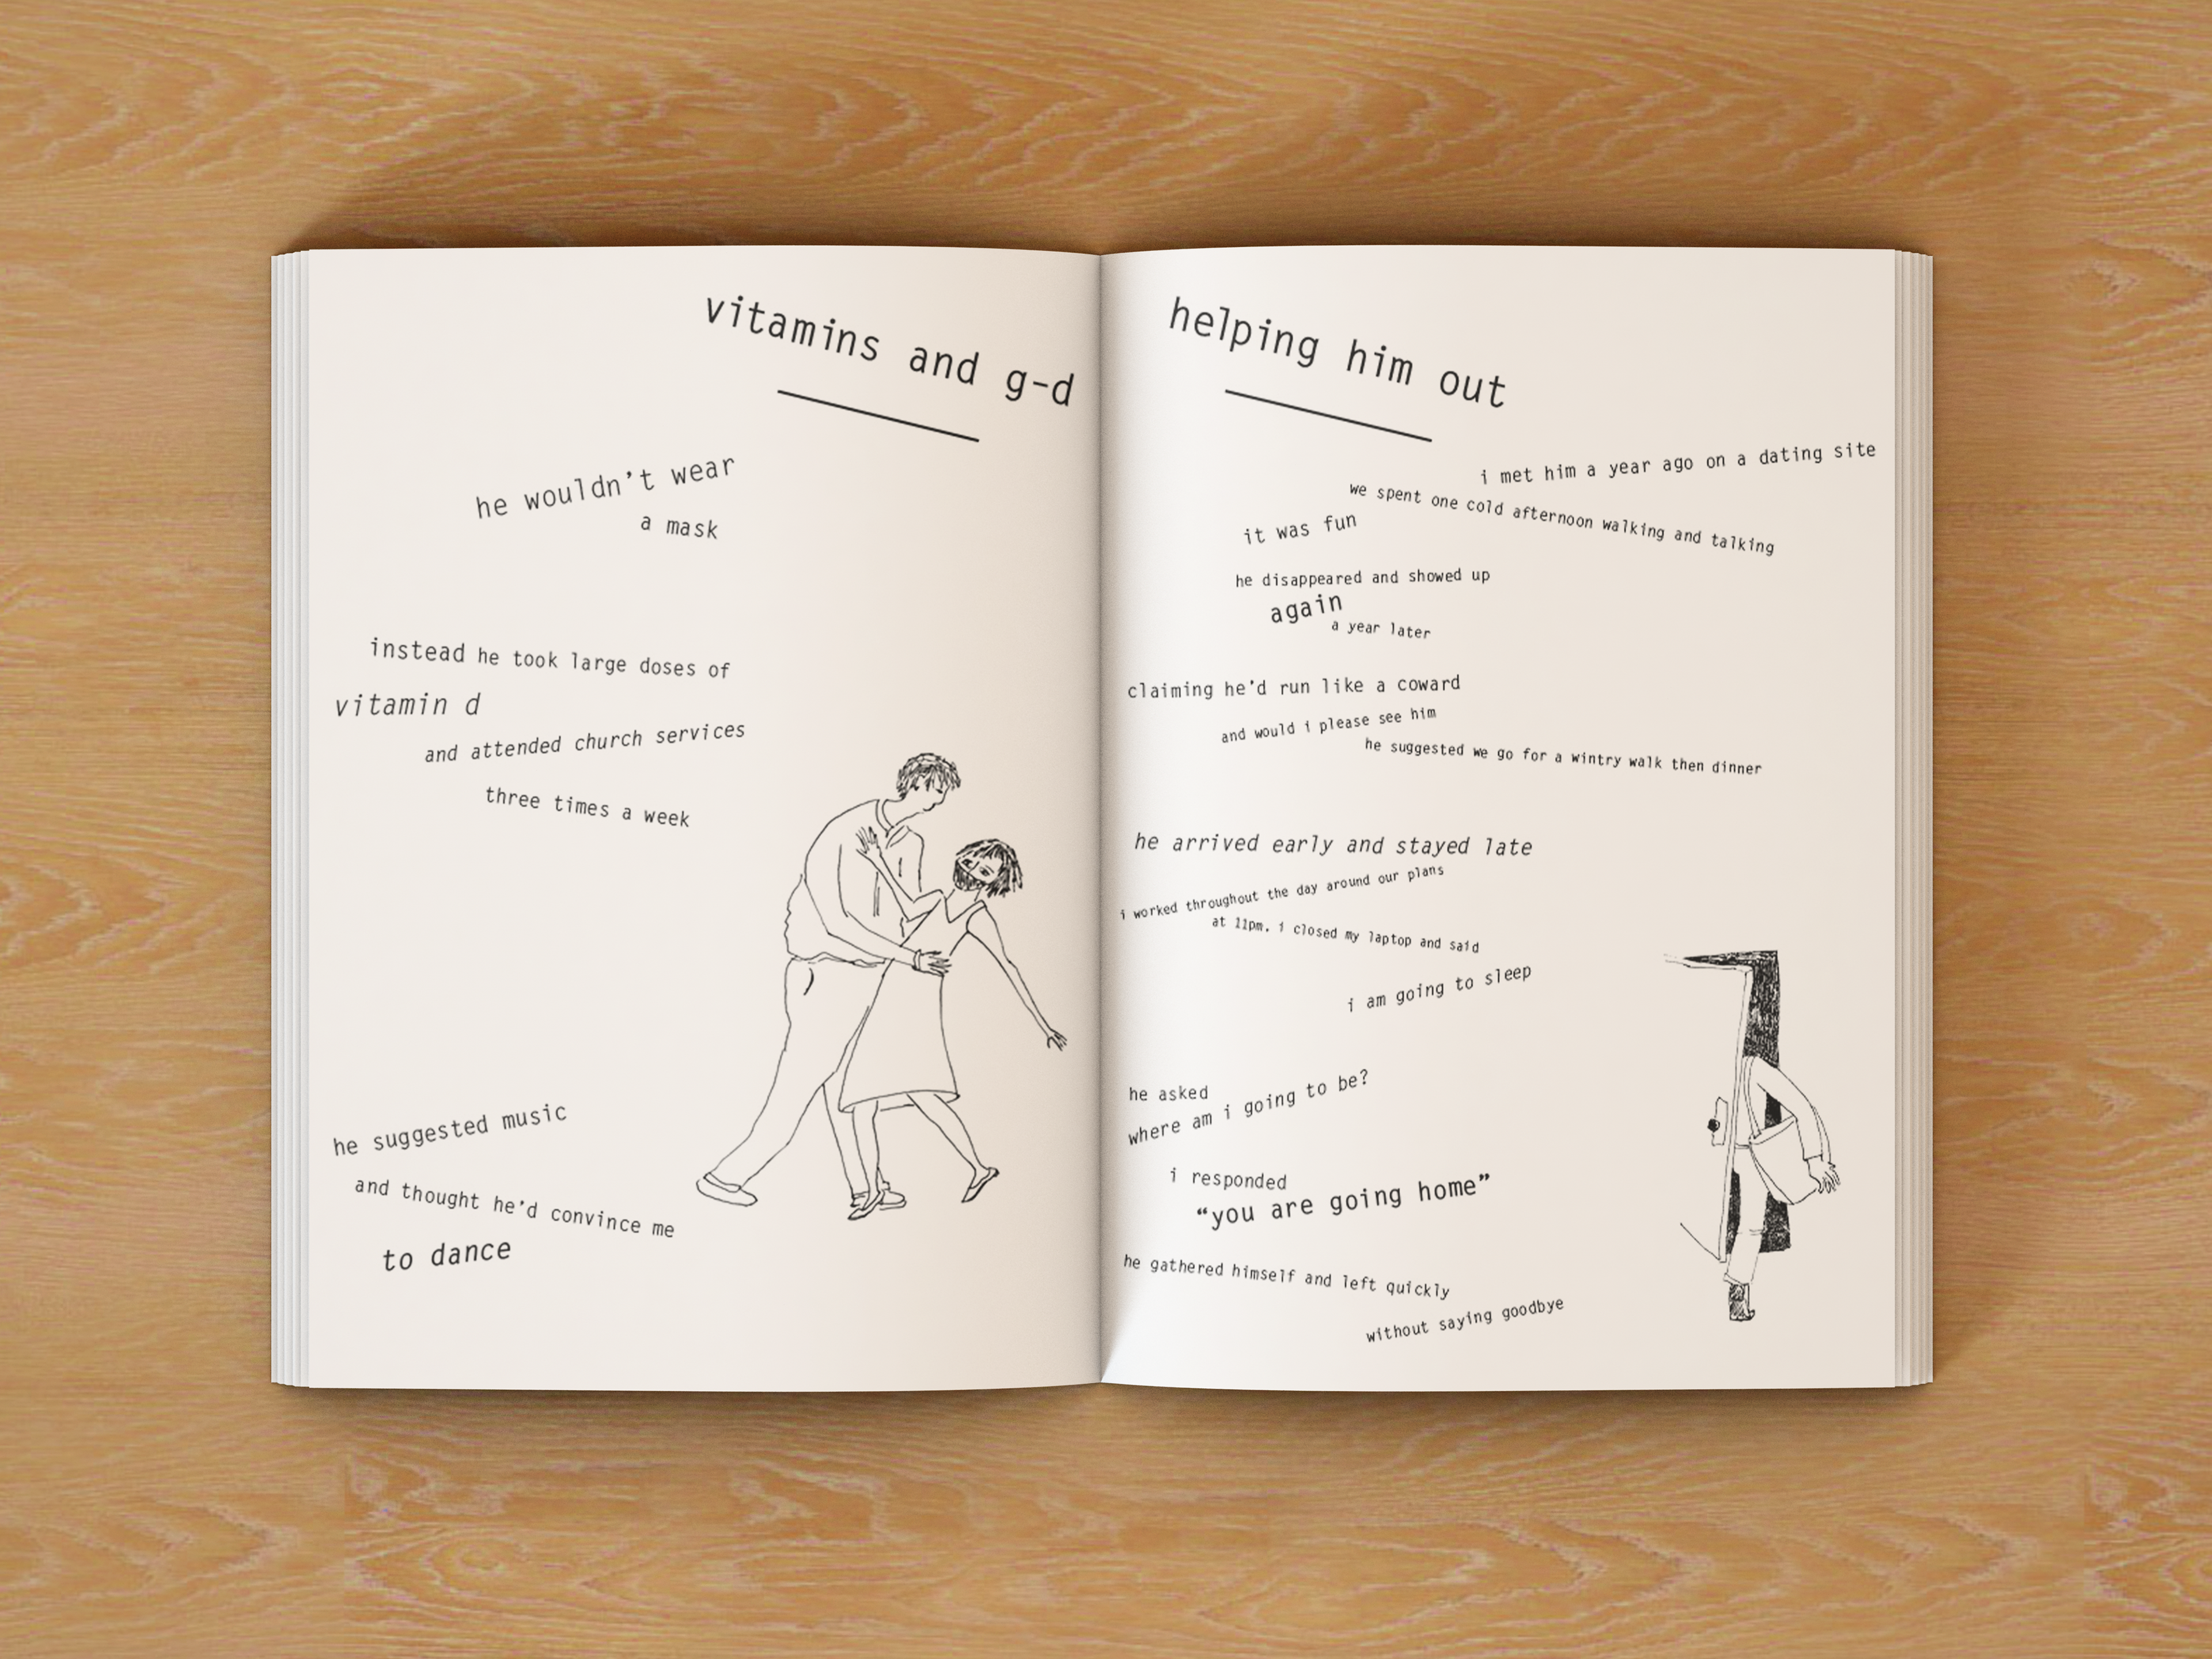 vitamins and g-d
he wouldn't wear
a mask
instead he took large doses of
vitamin d
and attended church services
three times a week
he suggested music
and thought he'd convince me
to dance
helping him out
i met him a year ago on a dating site
we spent one cold afternoon walking and talking
it was fun
he disappeared and showed up
again
a year later
claiming he'd run like a coward
and would i please see him
he suggested we go for a wintry walk then dinner
he arrived early and stayed late
i worked throughout the day around our plans
at 11pm. i closed my laptop and said
i am going to sleep
he asked
where am i going to be?
i responded
“you are going home”
he gathered himself and left quickly
without saying goodbye